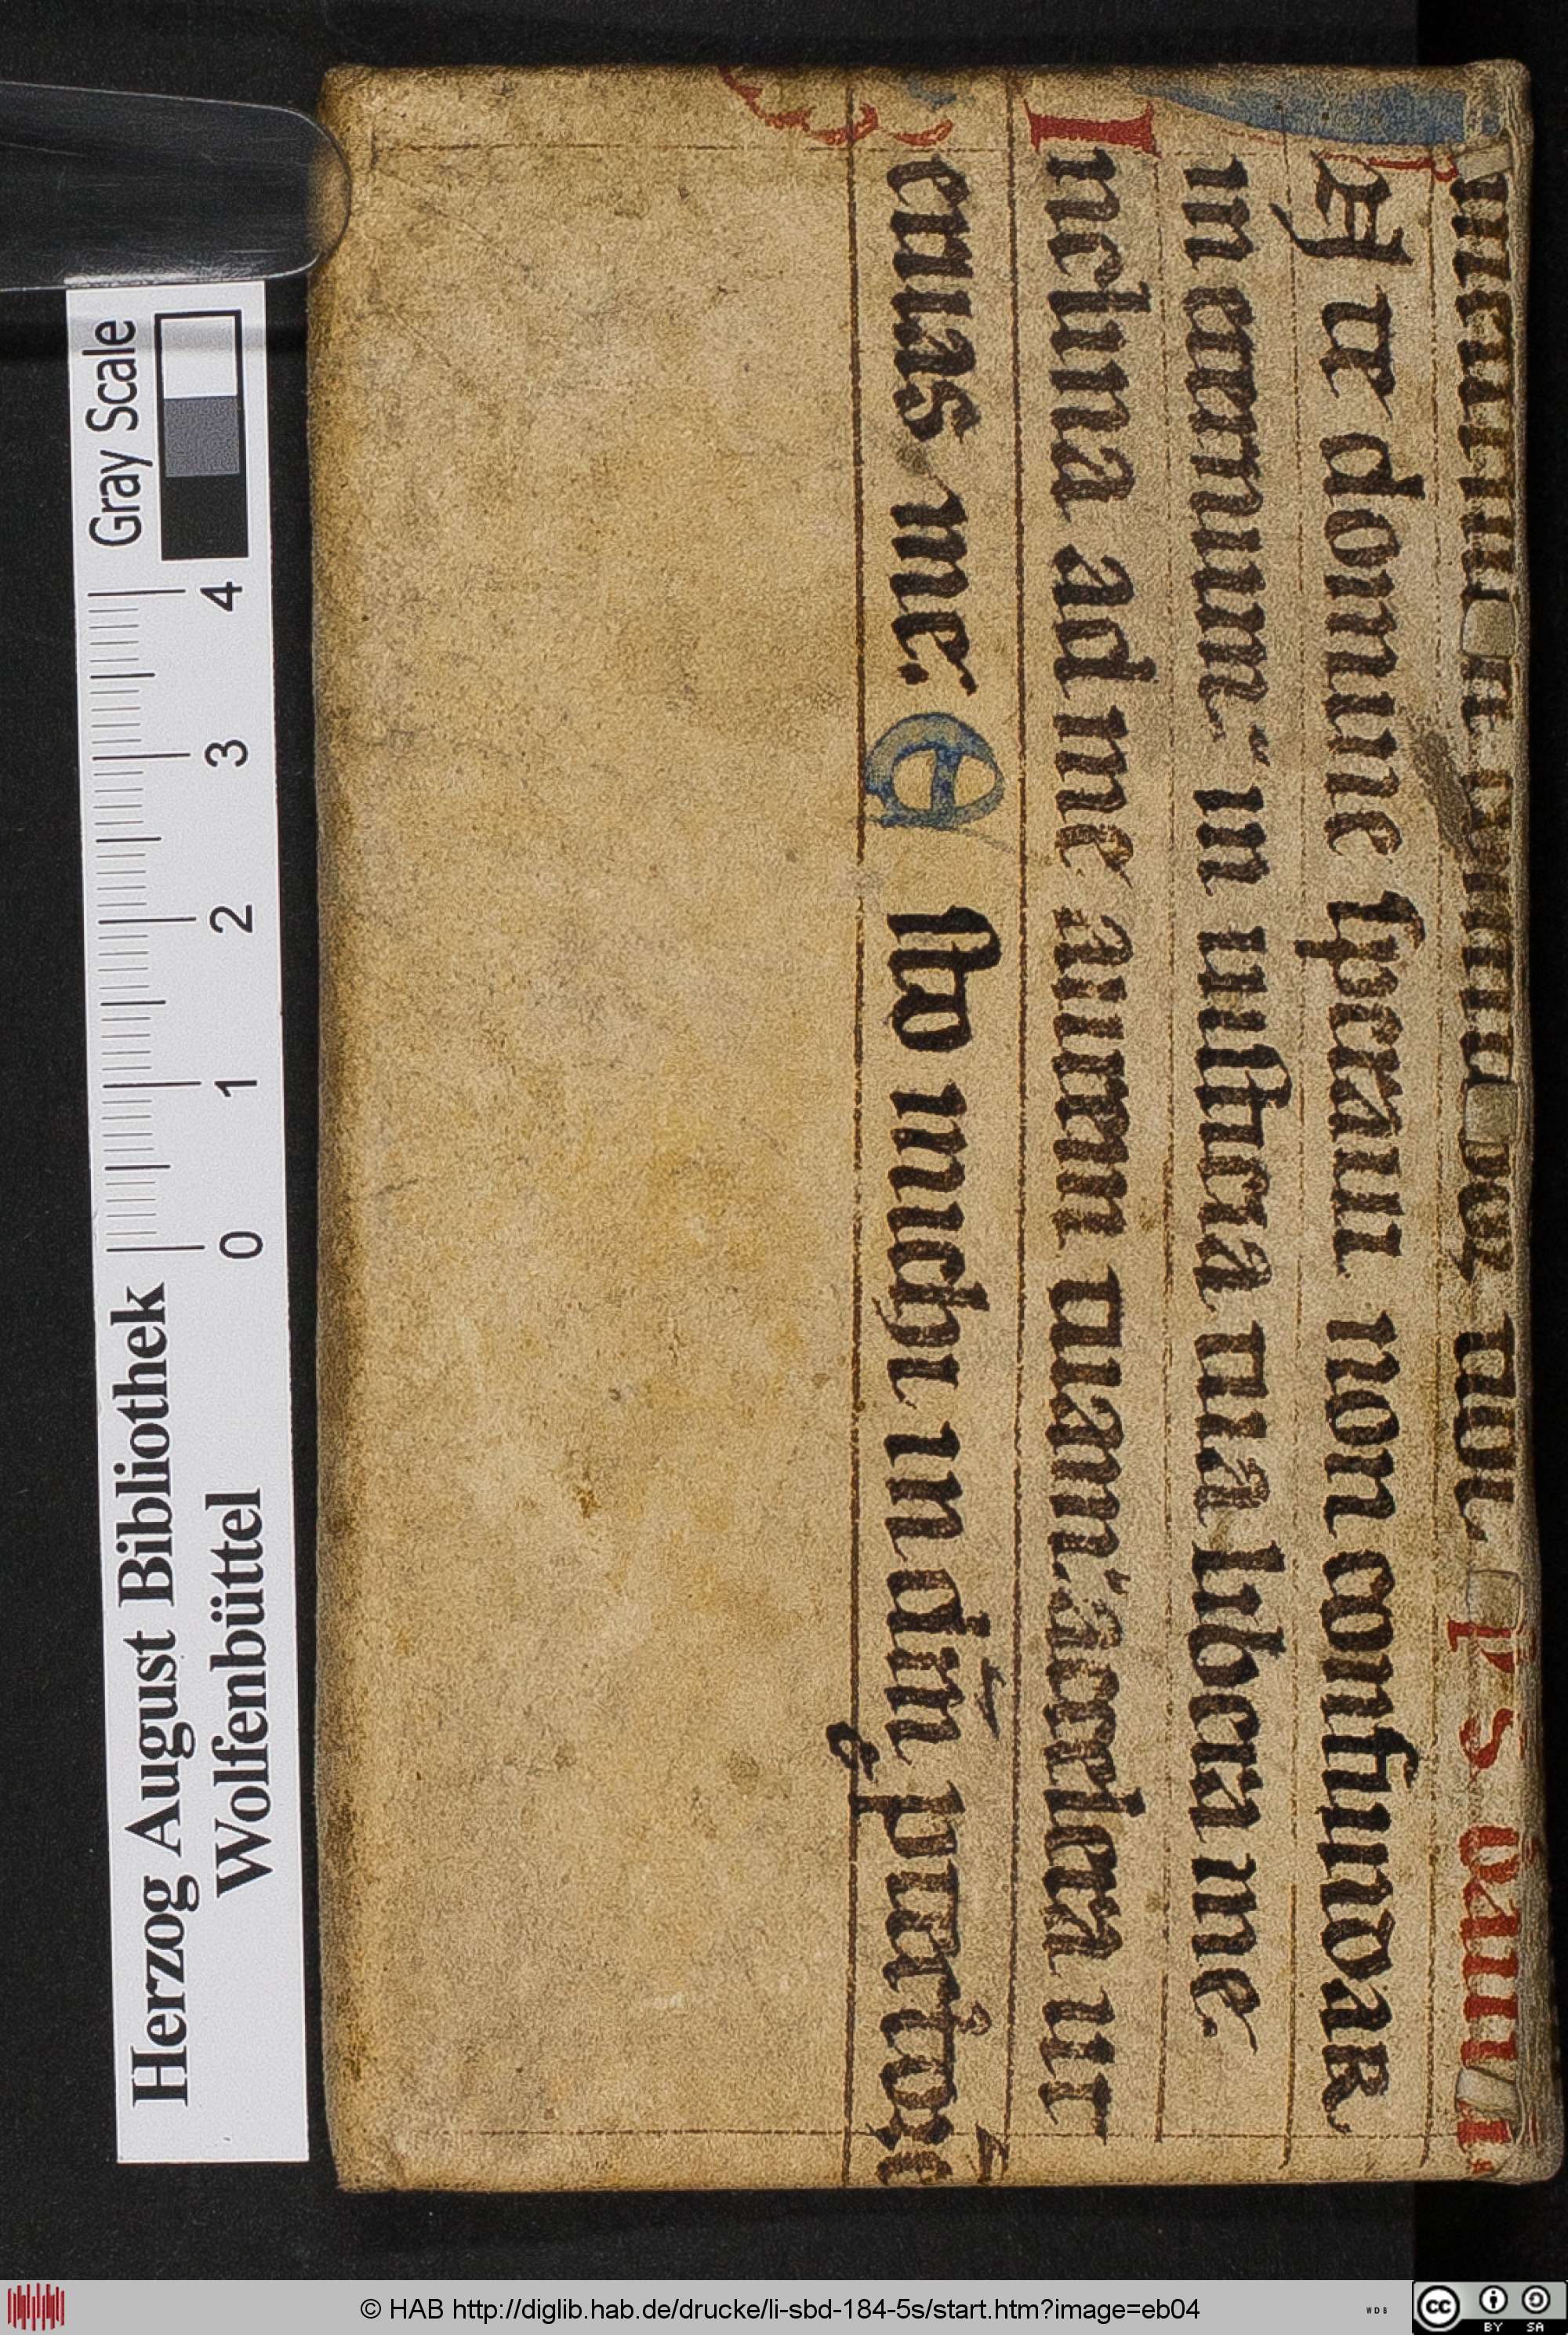 N te domine speraui non confundar
in eternum in iusticia tua libera me
Inclina ad me aurem tuam accelera ut
eruas me. Esto michi in deū protectorē
Gray Scale
4 3 2 1 0
Herzog August Bibliothek
Wolfenbüttel
© HAB http://diglib.hab.de/drucke/li-sbd-184-5s/start.htm?image=eb04
WDB
CC BY SA